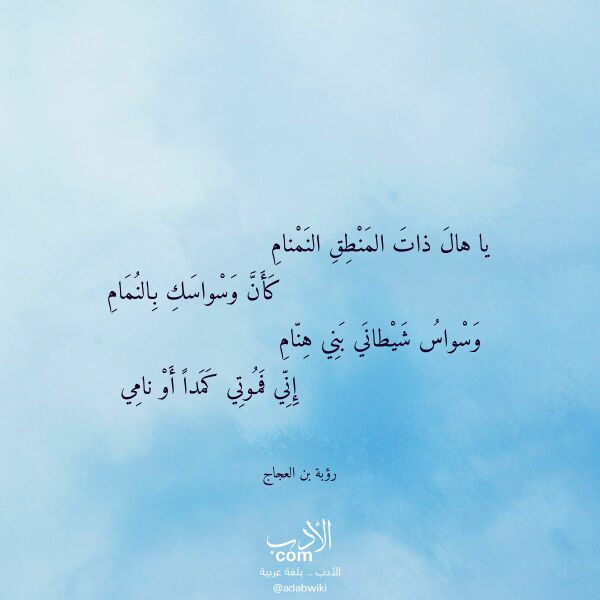 يا هالَ ذاتَ المَنْطِقِ النَمْنامِ
كَأَنَّ وَسْواسَكِ بِالنُمَامِ
وَسْواسُ شَيْطانَي بَنِي هِنّامِ
إِنِّي فَمُوتِي كَمَداً أَوْ نامِي
رؤبة بن العجاج
الأدب
com
الأدب .. بلغة عربية
@adabwiki